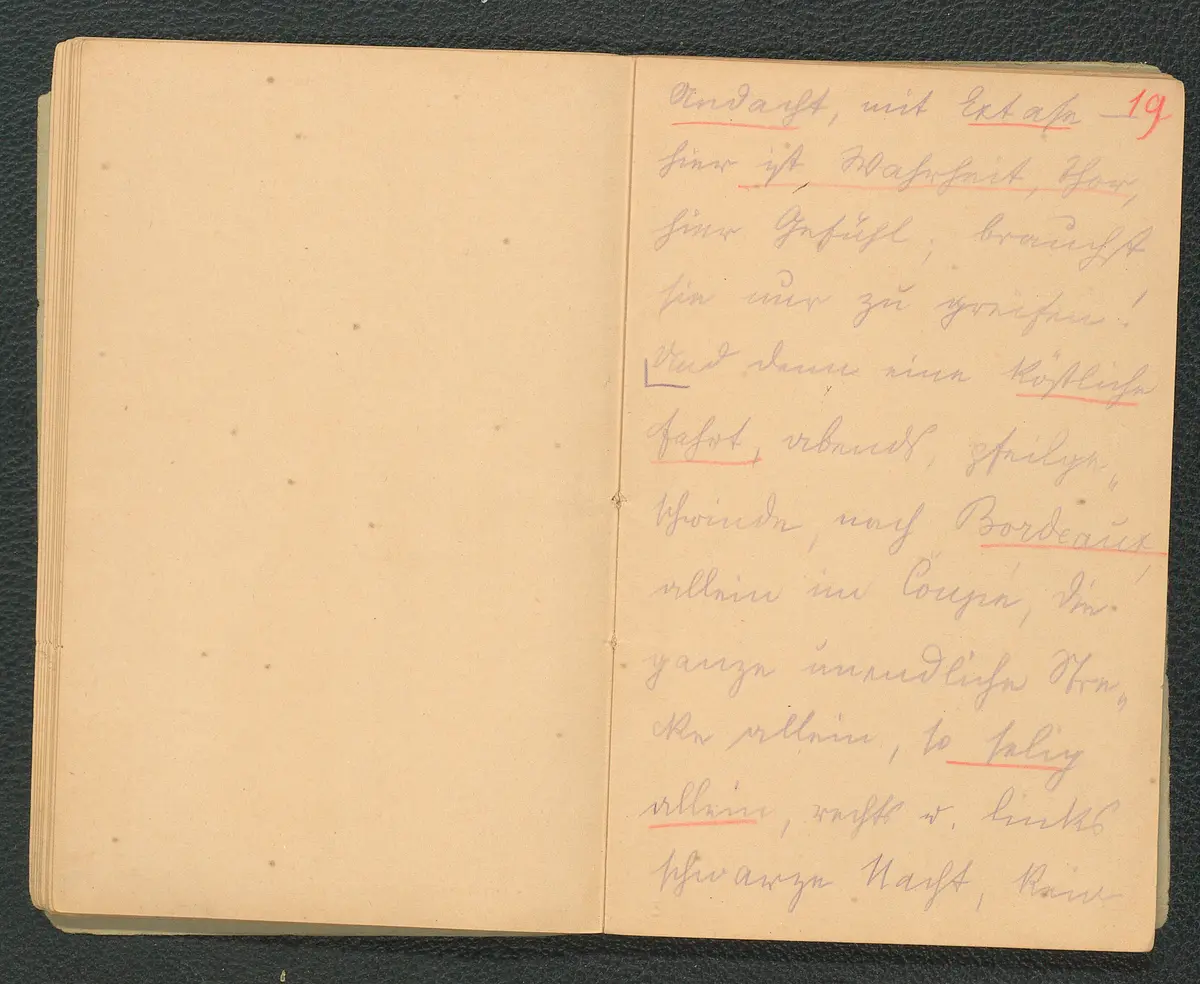 Andacht, mit Extase – 19
hier ist Wahrheit, Thor,
hier Gefühl; brauchst
sie nur zu greifen!
Und dann eine köstliche
Fahrt, abends, pfeilge„
schwinde, nach Bordeaux,
allein im Coupée, die
ganze unendliche Stre„
cke allein, so selig
allein, rechts u. links
schwarze Nacht, kein